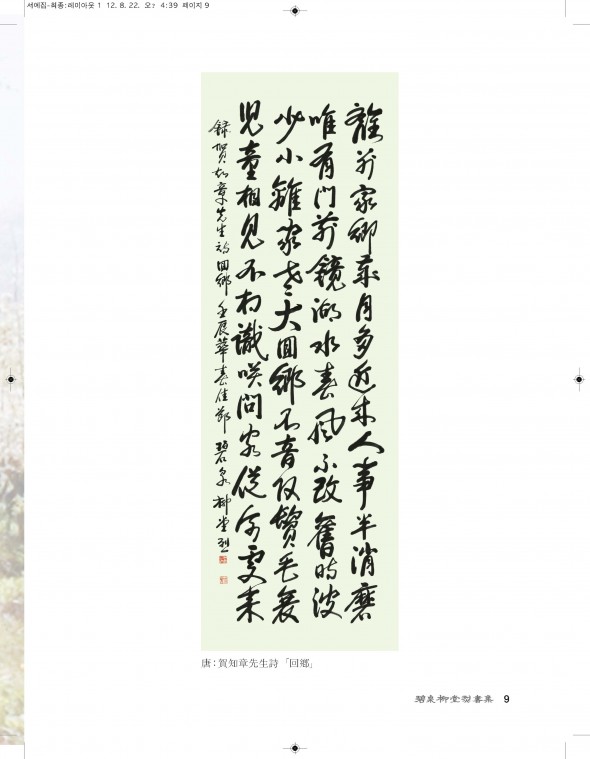 서예집-최종:레이아웃 1 12. 8. 22. 오? 4:39 페이지 9
離別家鄉歲月多近來人事半消磨
唯有門前鏡湖水春風不改舊時波
少小離家老大回鄉不音改鬢毛衰
兒童相見不相識咲問客從何處來
錄賀知章先生詩回鄉 壬辰華春佳節 碧泉 柳堂烈
唐：賀知章先生詩「回鄕」
碧泉柳堂烈書集 9